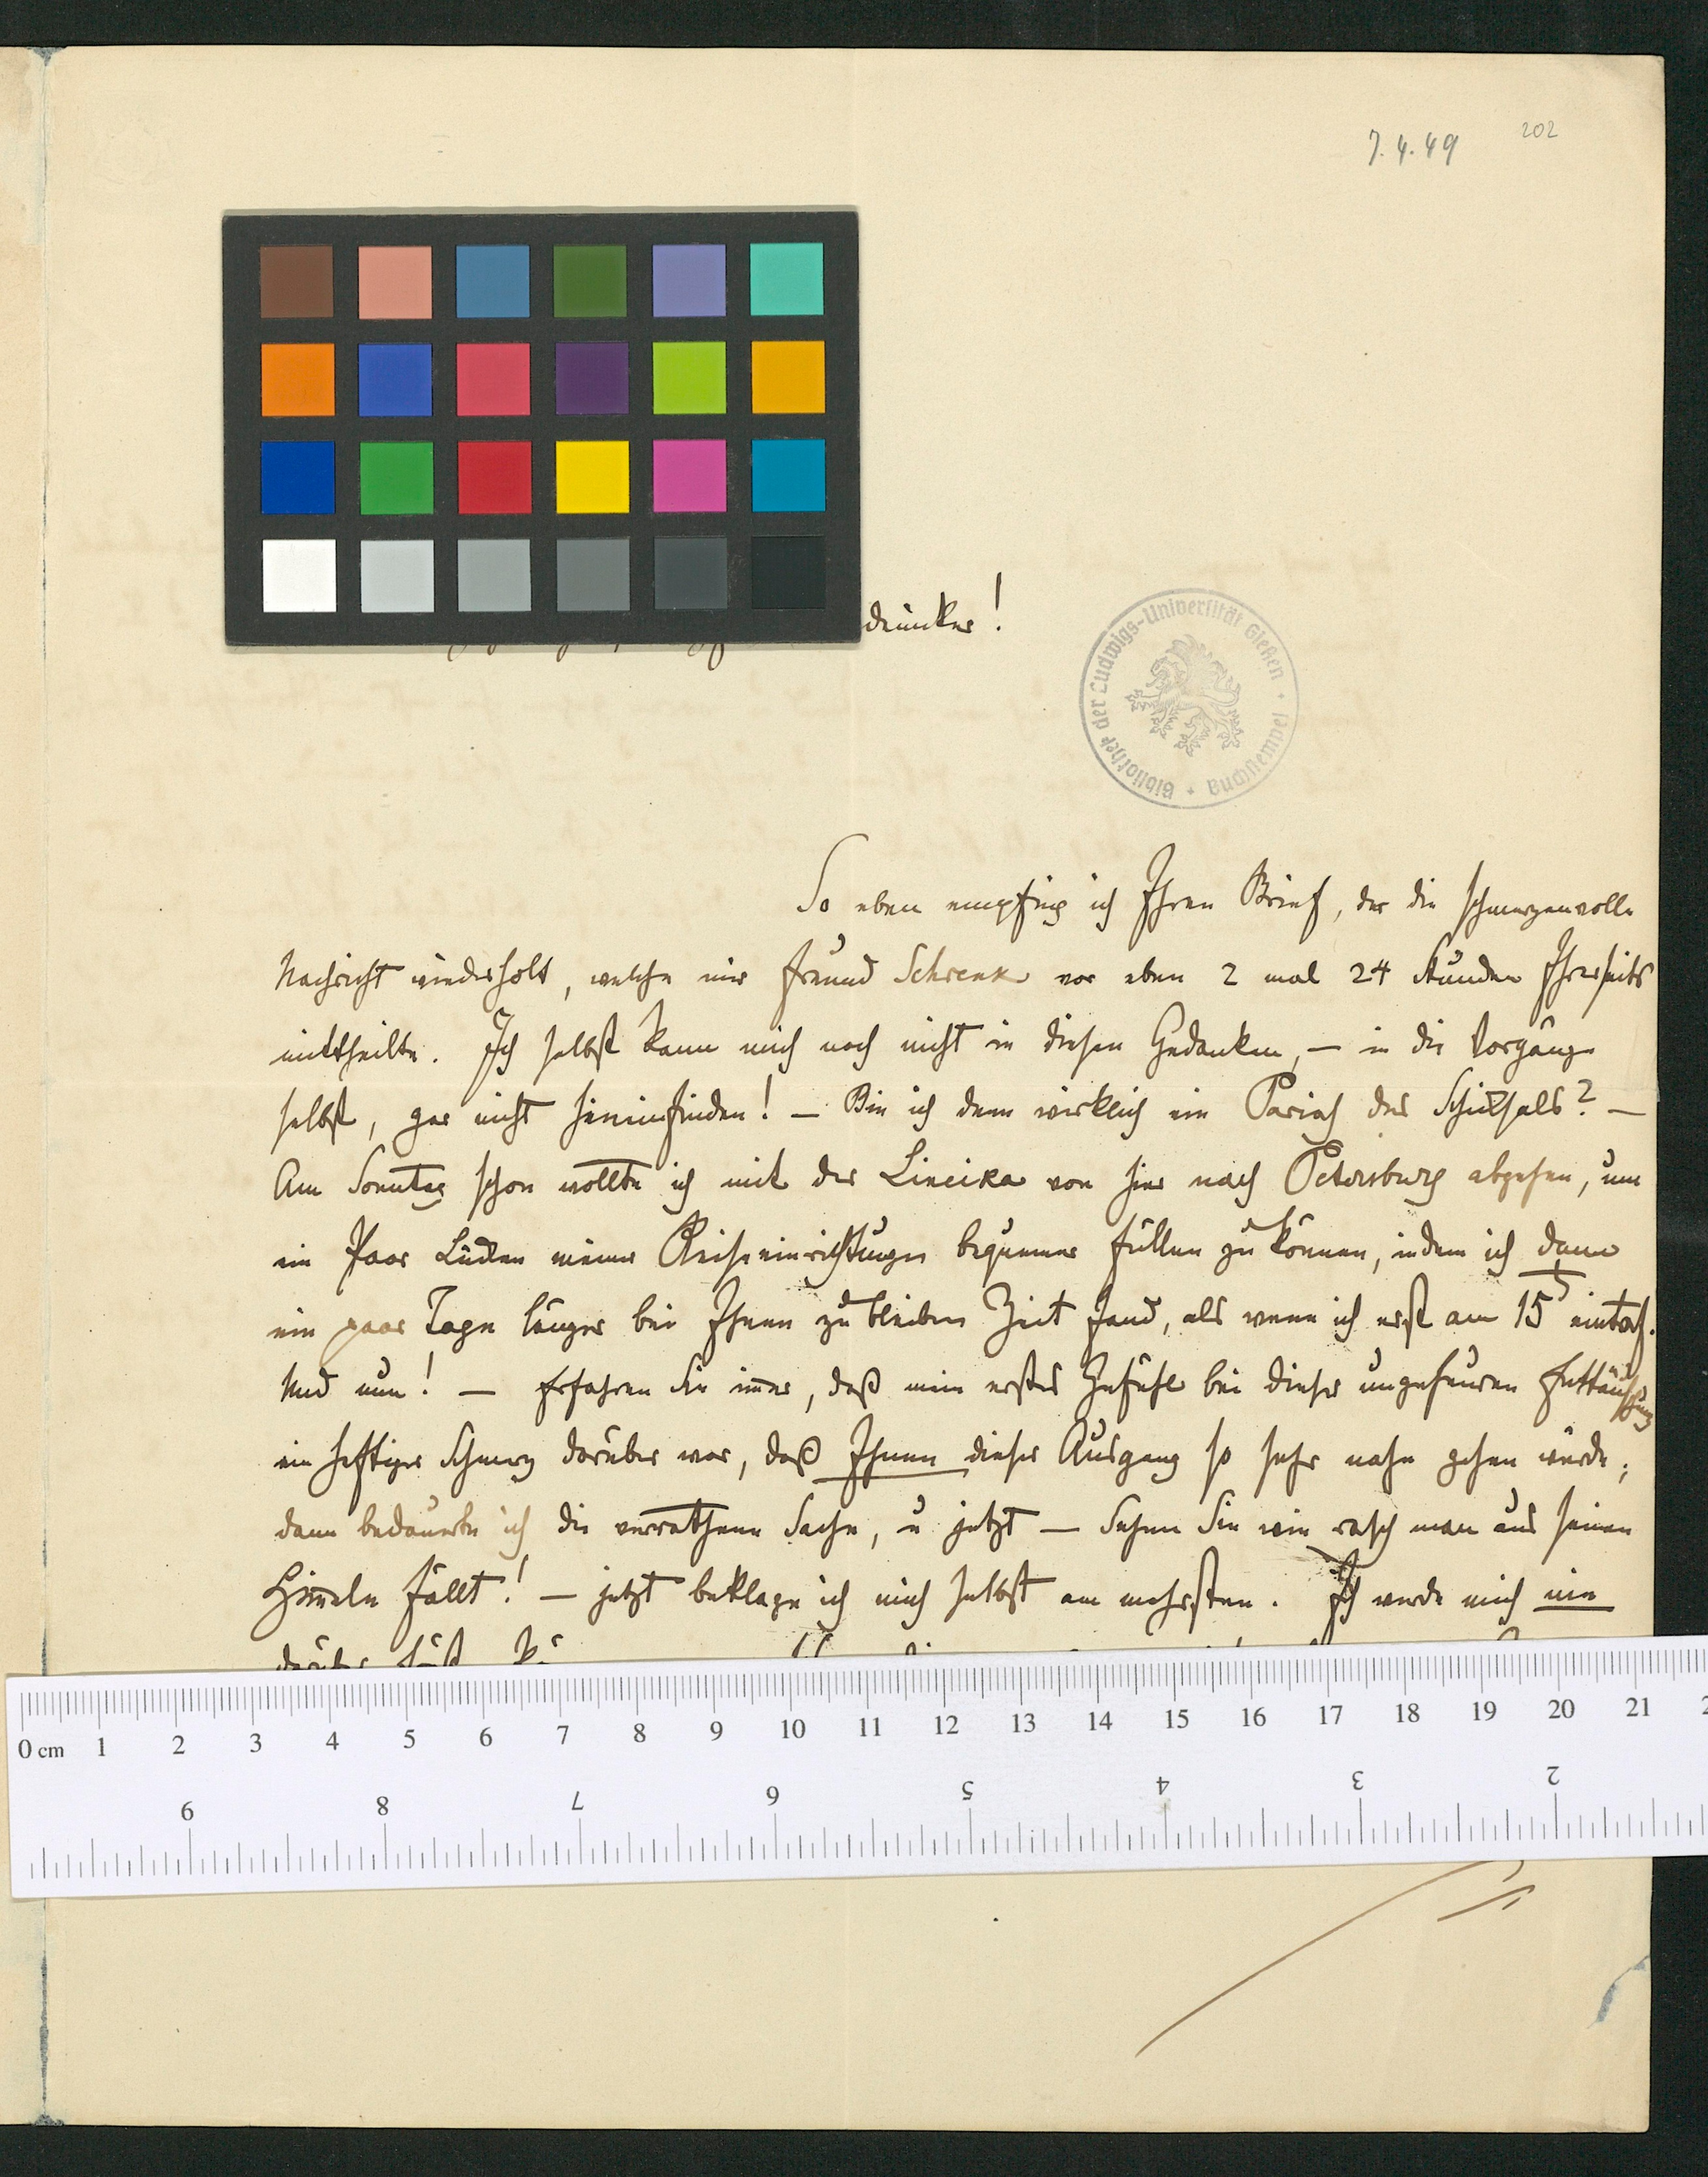 7.4.49
202
drucker!
Bibliothek der Ludwigs-Universität Gießen • Buchstempel •
So eben empfing ich Ihren Brief, der die schmerzenvolle
Nachricht wiederholt, welche mir Freund Schrenk vor eben 2 mal 24 Stunden Ihrerseits
mittheilte. Ich selbst kann mich noch nicht in diesen Gedanken, – in die Vorgänge
selbst, gar nicht hineinfinden! – Bin ich denn wirklich ein Pariah des Schicksals? –
Am Sonntag schon wollte ich mit der Lineika von hier nach Petersburg abgehen, um
ein Paar Lücken meiner Reiseeinrichtungen bequemer füllen zu können, indem ich dann
ein paar Tage länger bei Ihnen zu bleiben Zeit fand, als wenn ich erst am 15 eintraf.
Und nun! – Erfahren Sie immer, daß mein erstes Gefühl bei dieser ungeheuren Enttäuschung
ein heftiger Schmerz darüber war, daß Ihnen dieser Ausgang so sehr nahe gehen würde;
dann bedauerte ich die verrathene Sache, u jetzt – Sehen Sie wie rasch man aus seinen
Himmeln fällt! – jetzt beklage ich mich selbst am mehrsten. Ich werde mich nie
darüber
0 cm 1 2 3 4 5 6 7 8 9 10 11 12 13 14 15 16 17 18 19 20 21
9 8 7 6 5 4 3 2